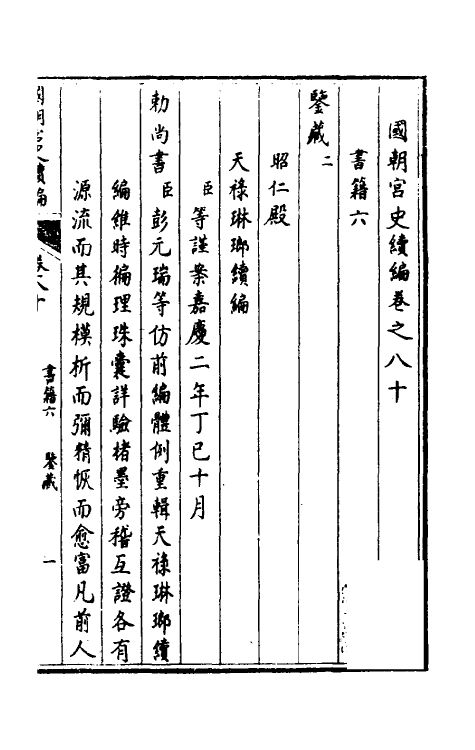 國朝宮史續編卷之八十
書籍六
鑒藏二
昭仁殿
天祿琳瑯續編
臣等謹案嘉慶二年丁巳十月
勅尚書臣彭元瑞等仿前編體例重輯天祿琳瑯續
編維時徧理珠囊詳驗楮墨旁稽互證各有
源流而其規模析而彌精恢而愈富凡前人
國朝宮史續編 卷八十 書籍六 鑒藏 一